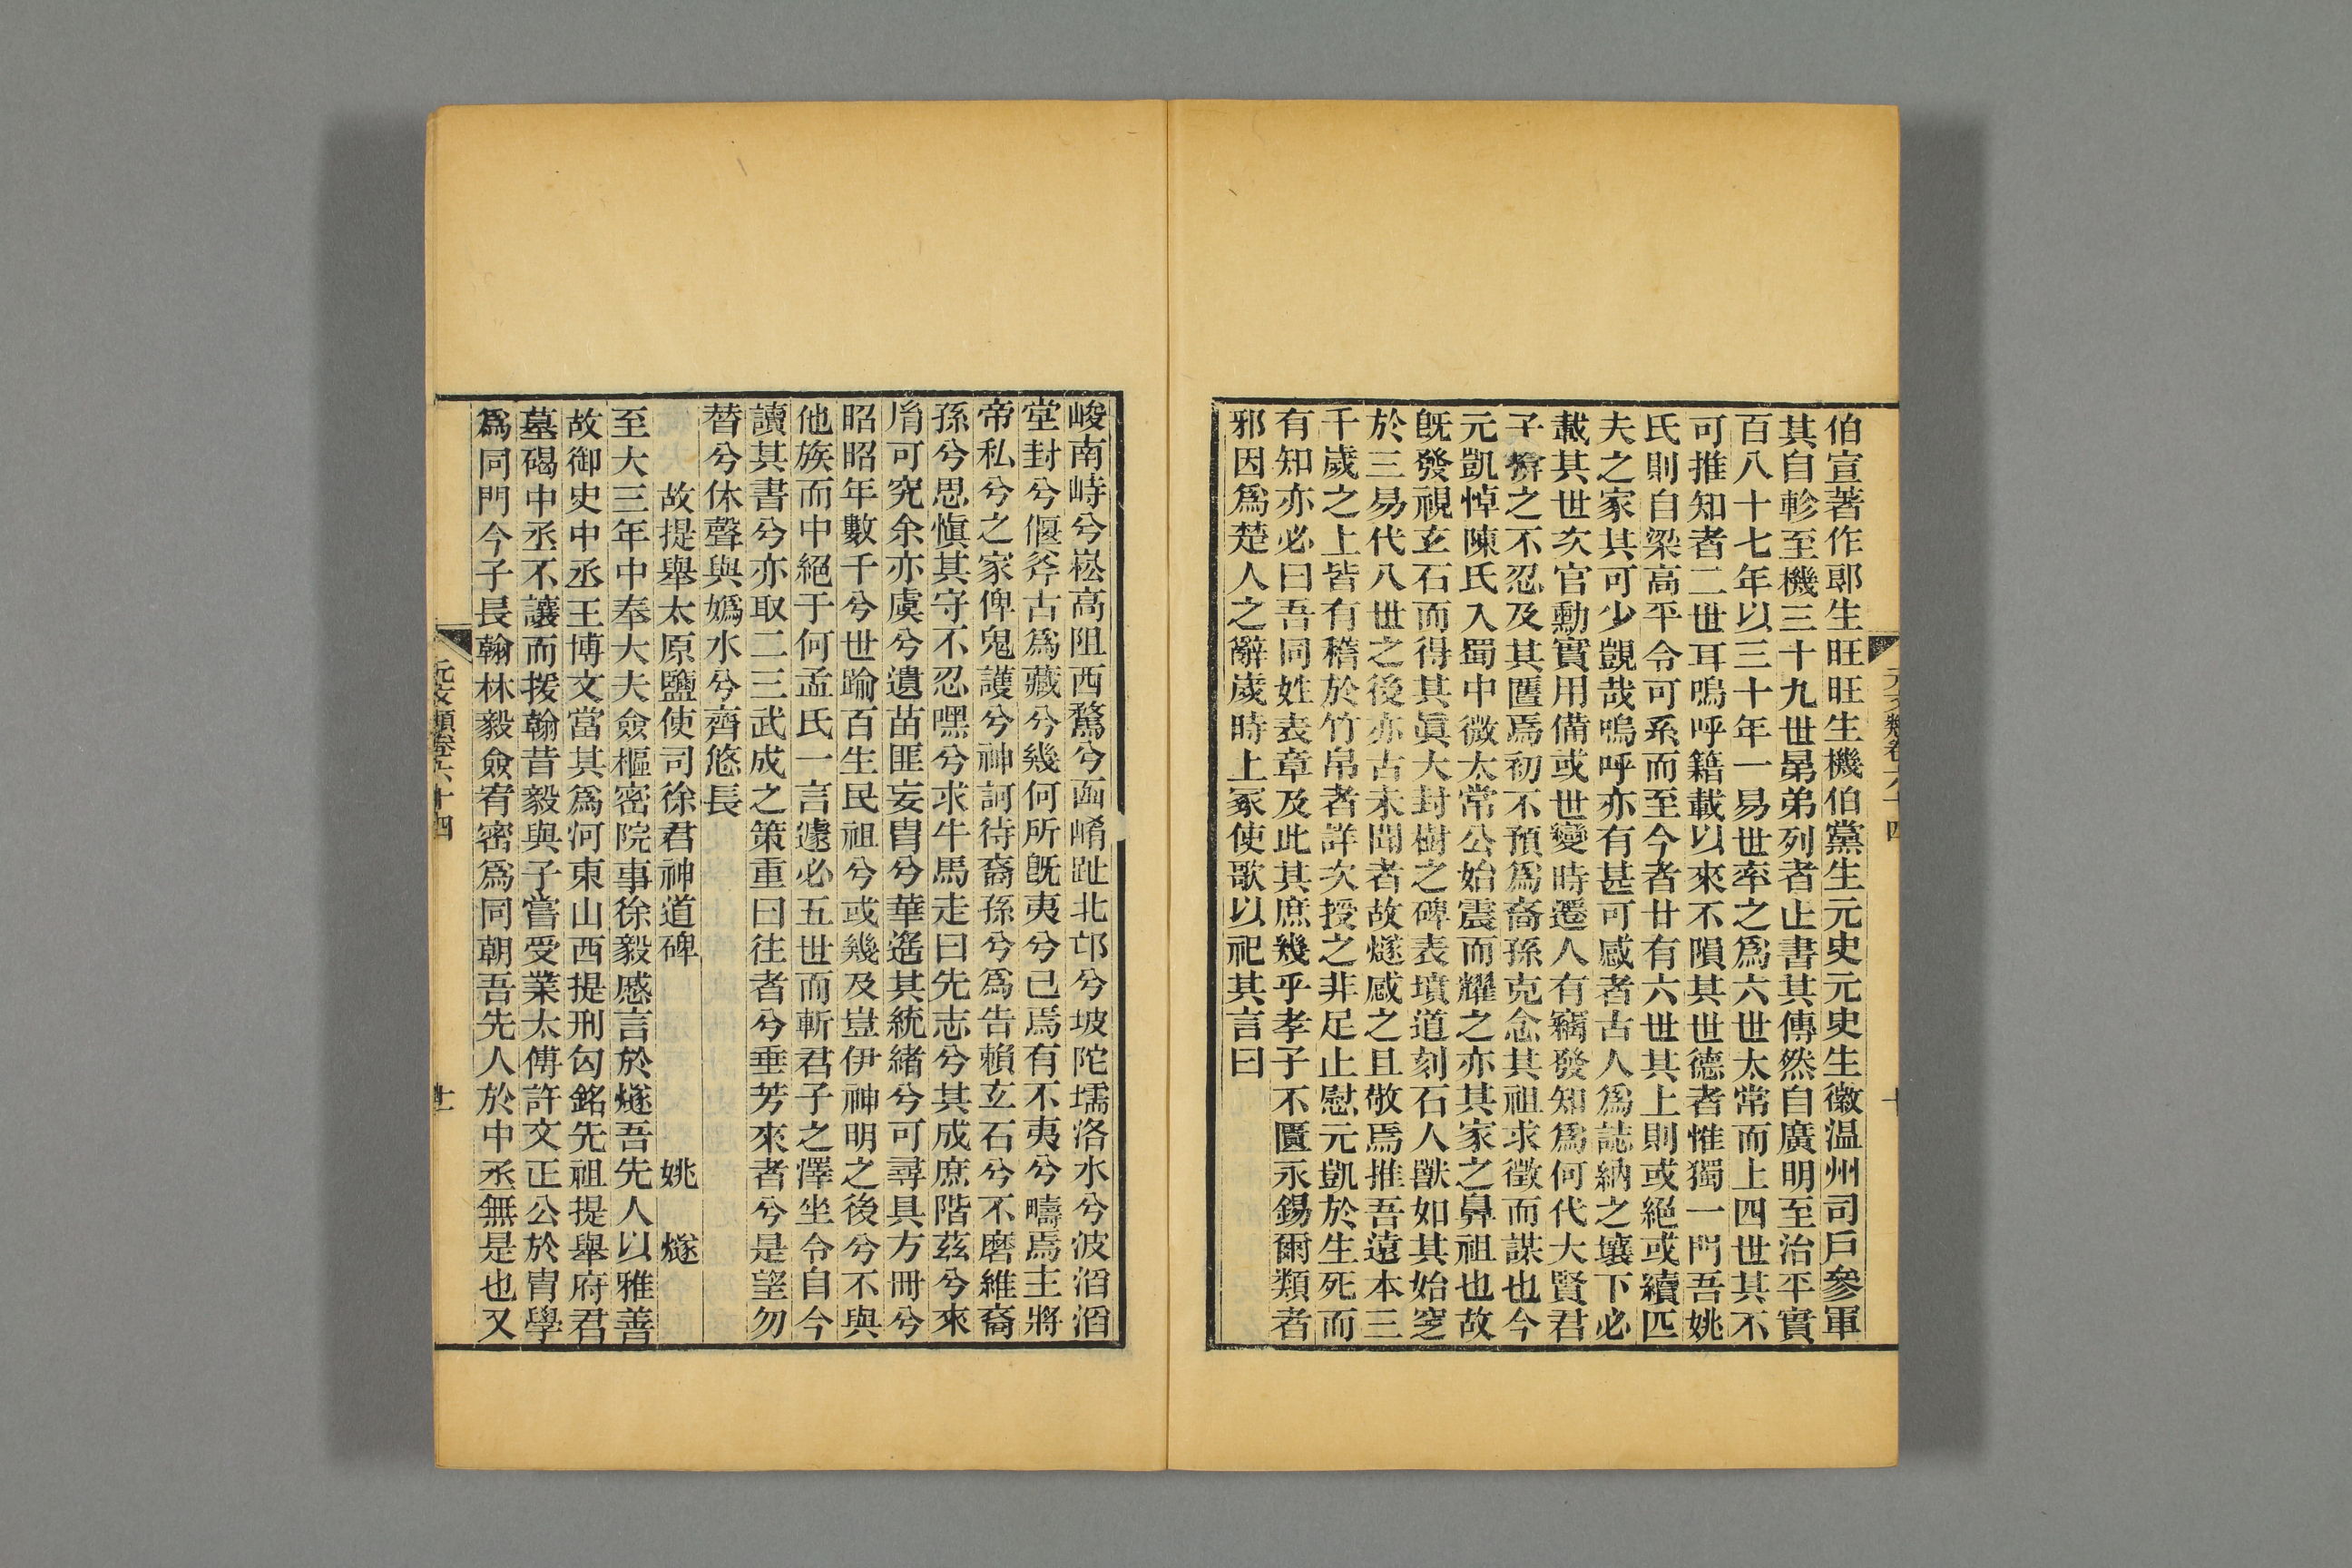 伯宣著作郎生旺旺生機伯黨生元史元史生徽温州司戶參軍
其自軫至機三十九世㬅弟列者止書其傳然自廣明至治平實
百八十七年以三十年一易世率之爲六世太常而上四世其不
可推知者二世耳嗚呼籍載以來不隕其世德者惟獨一門吾姚
氏則自梁高平令可系而至今者廿有六世其上則或絕或續匹
夫之家其可少覬哉嗚呼亦有甚可感者古人爲誌納之壤下必
載其世次官勳實用備或世變時遷人有竊發知爲何代大賢君
子揜之不忍及其匶焉初不預爲裔孫克念其祖求徵而謀也今
元凱悼陳氏入蜀中微太常公始震而耀之亦其家之鼻祖也故
旣發視玄石而得其眞大封樹之碑表墳道刻石人獸如其始窆
於三易代八世之後亦古未聞者故燧感之且敬焉推吾遠本三
千歲之上皆有稽於竹帛者詳次授之非足止慰元凱於生死而
有知亦必曰吾同姓表章及此其庶幾乎孝子不匱永錫爾類者
邪因爲楚人之辭歲時上冢使歌以祀其言曰
元文類卷六十四
十
峻南峙兮崧高阻西騖兮函崤趾北邙兮坡陀壖洛水兮波滔滔
堂封兮偃斧古爲藏兮幾何所旣夷兮已焉有不夷兮疇焉主將
帝私兮之家俾鬼護兮神訶待裔孫兮爲告賴玄石兮不磨維裔
孫兮思愼其守不忍嘿兮求牛馬走曰先志兮其成庶階茲兮來
胄可究余亦虞兮遺苗匪妄胄兮華遙其統緖兮可尋具方冊兮
昭昭年數千兮世踰百生民祖兮或幾及豈伊神明之後兮不與
他族而中絕于何孟氏一言遽必五世而斬君子之澤坐令自今
讀其書兮亦取二三武成之策重曰往者兮垂芳來者兮是望勿
替兮休聲與嬀水兮齊悠長
故提舉太原鹽使司徐君神道碑　姚　燧
至大三年中奉大夫僉樞密院事徐毅感言於燧吾先人以雅善
故御史中丞王博文當其爲河東山西提刑匃銘先祖提舉府君
墓碣中丞不讓而援翰昔毅與子嘗受業太傅許文正公於胄學
爲同門今子長翰林毅僉宥密爲同朝吾先人於中丞無是也又
元文類卷六十四
十一